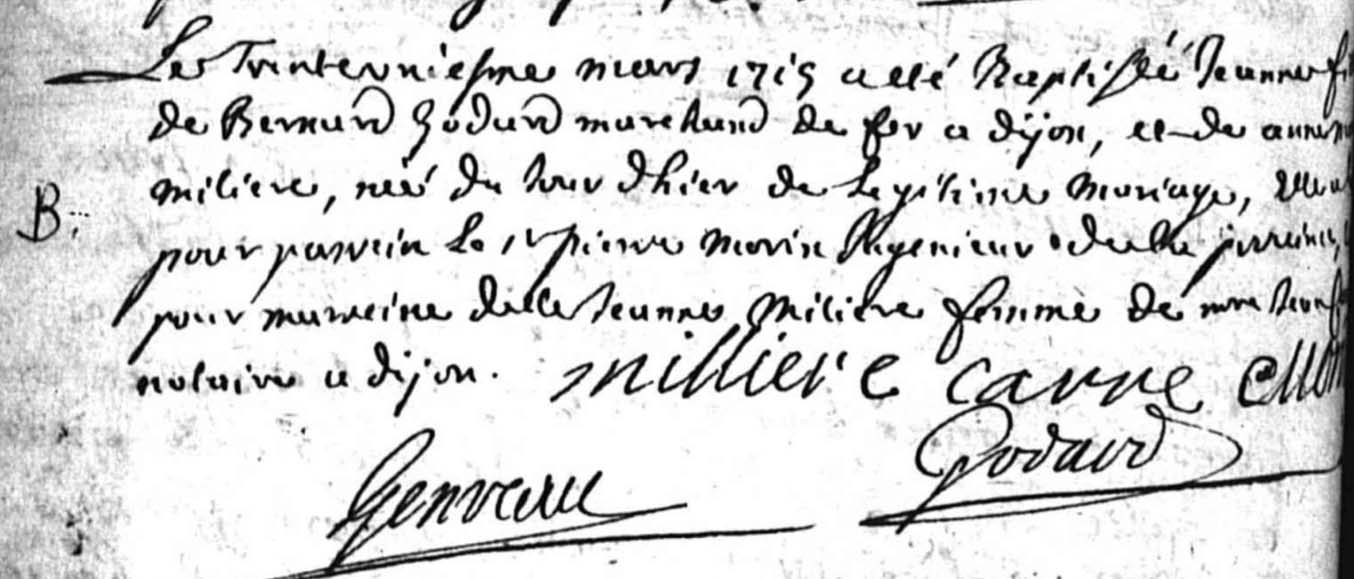 Le Trenteuniesme mars 1715 a esté Baptisée Jeanne fi
de Bernard Godard marchand de fer a dijon, et de anne
miliere, née du Jour dhier de Legitime Mariage,
B. pour parrein le sr pierre morin Ingenieur de la province,
pour marreine delle Jeanne Miliere femme de mre
notaire a dijon. milliere carre
Godard
Genreau